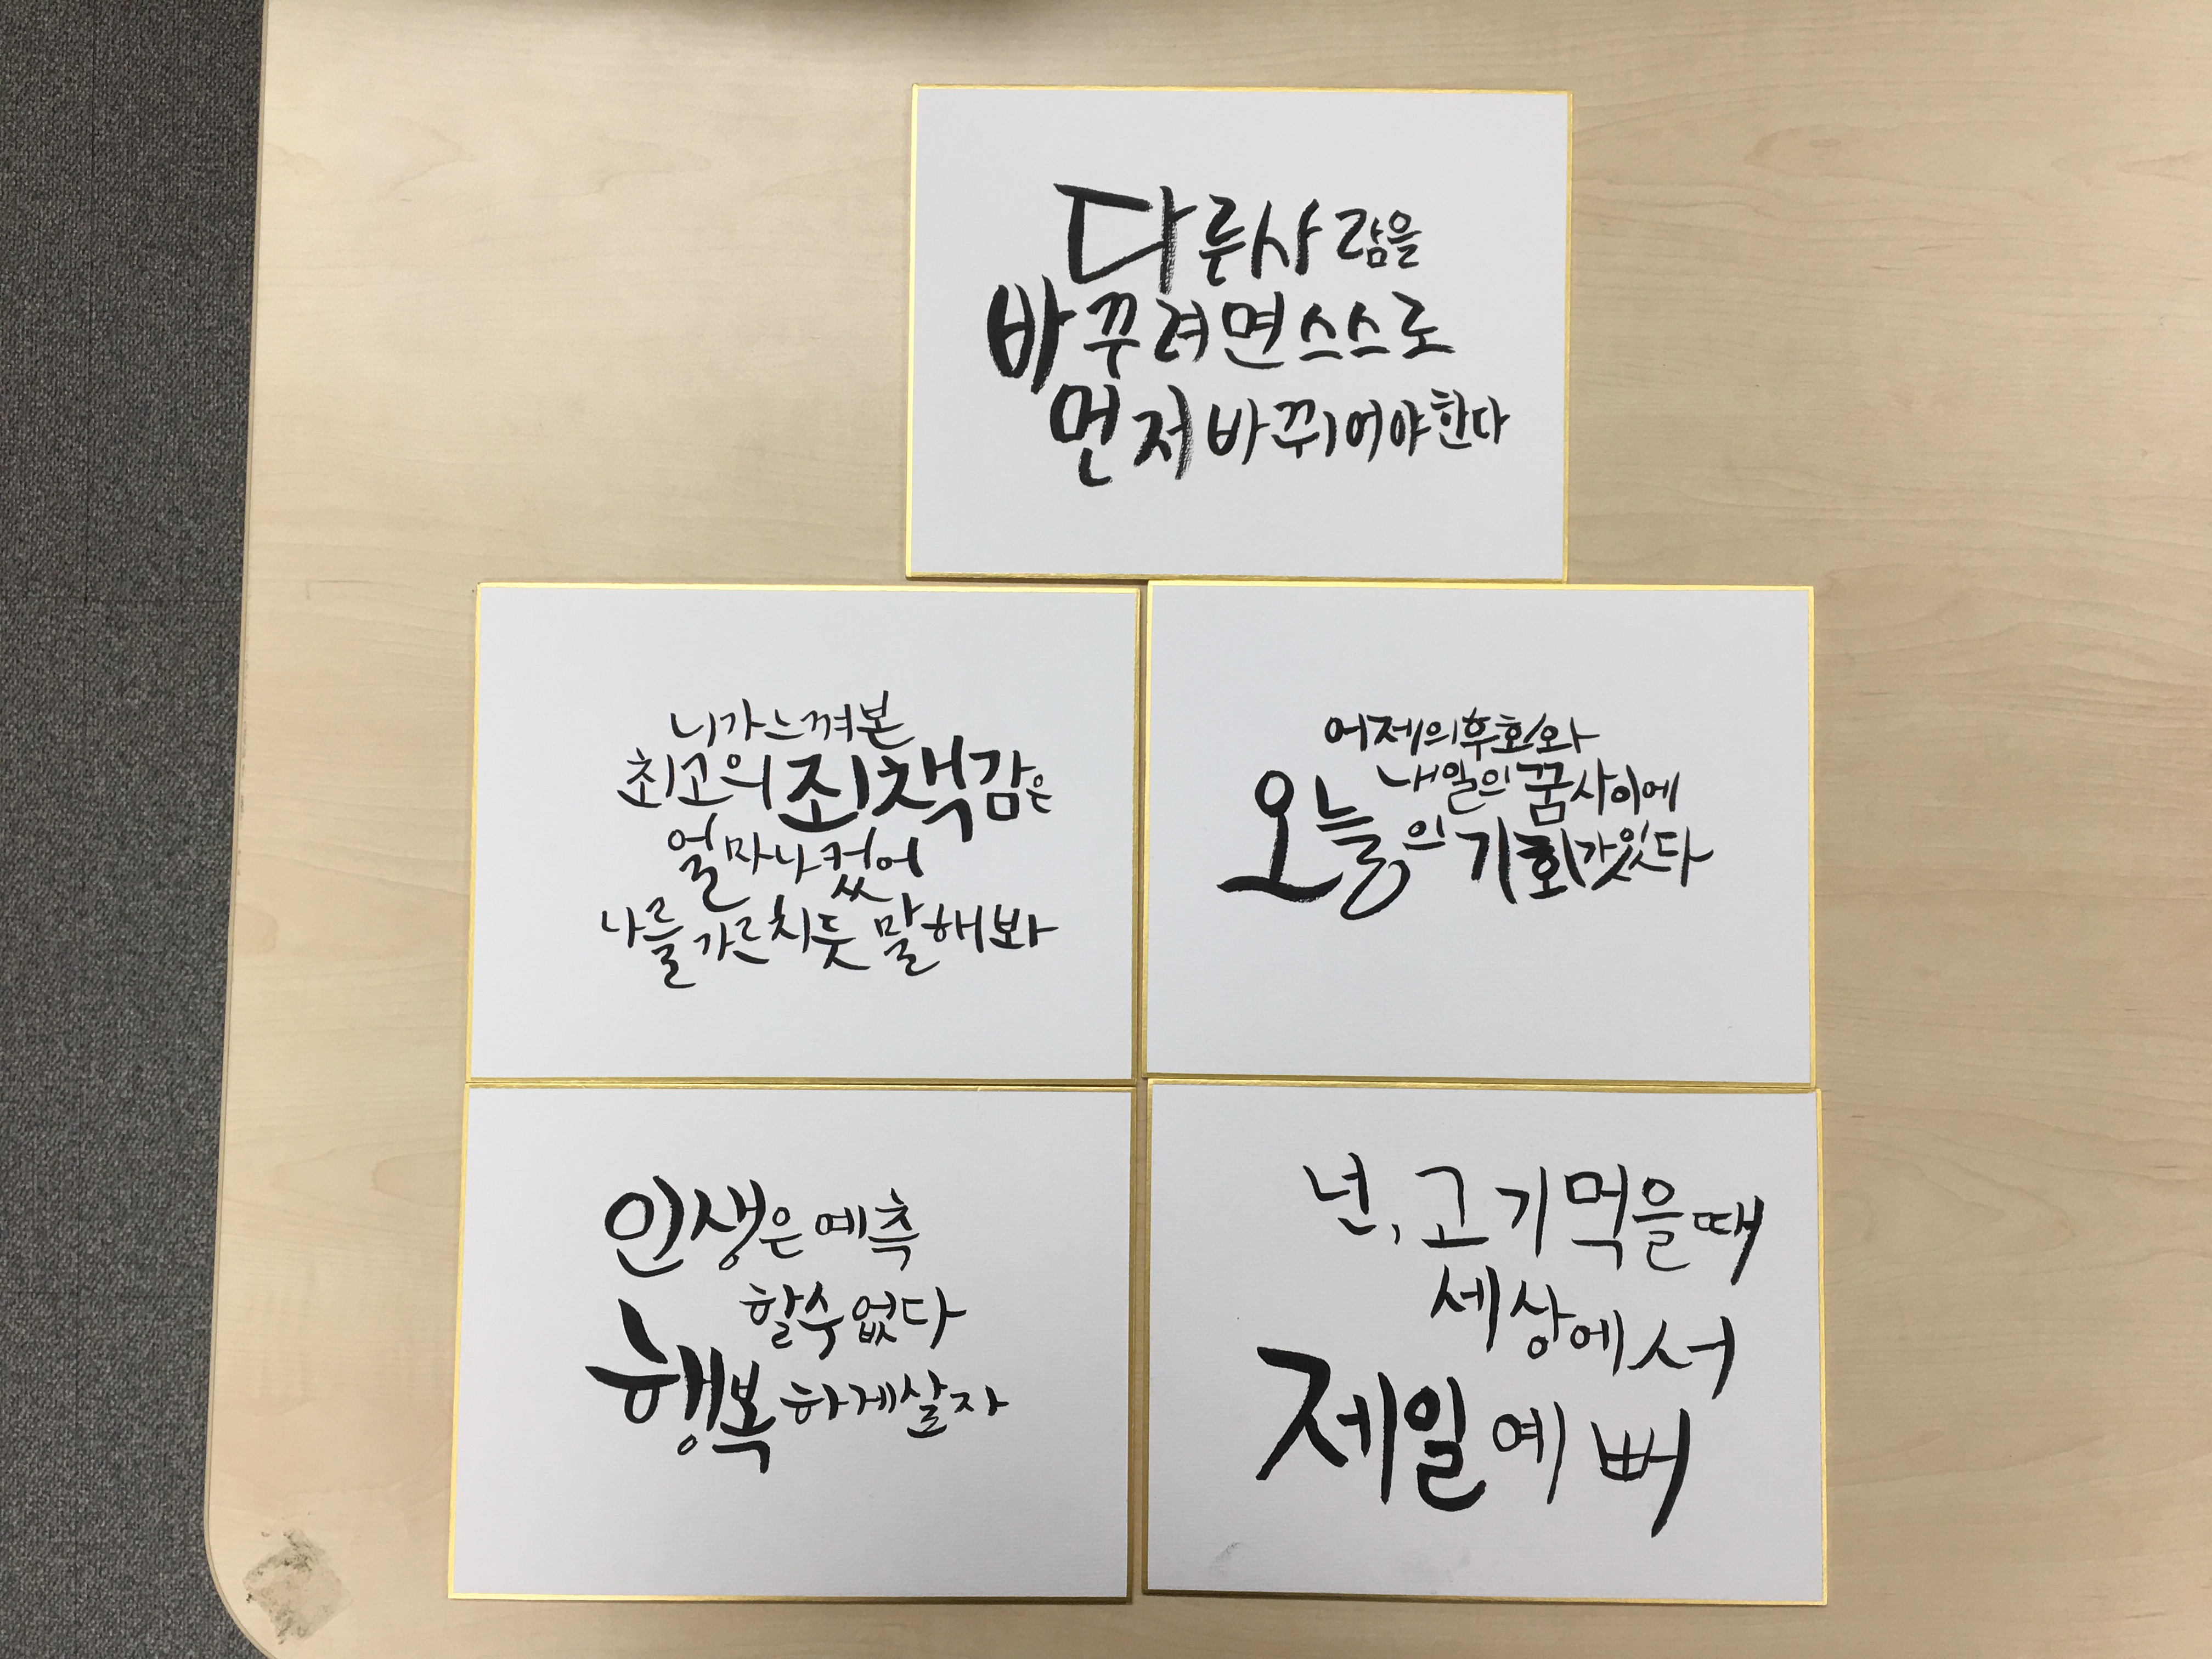 다른사람을
바꾸려면스스로
먼저바뀌어야한다
니가느껴본
최고의죄책감은
얼마나컸어
나를가르치듯 말해봐
어제의후회와
내일의꿈사이에
오늘의기회가있다
인생은예측
할수없다
행복하게살자
넌,고기먹을때
세상에서
제일예뻐